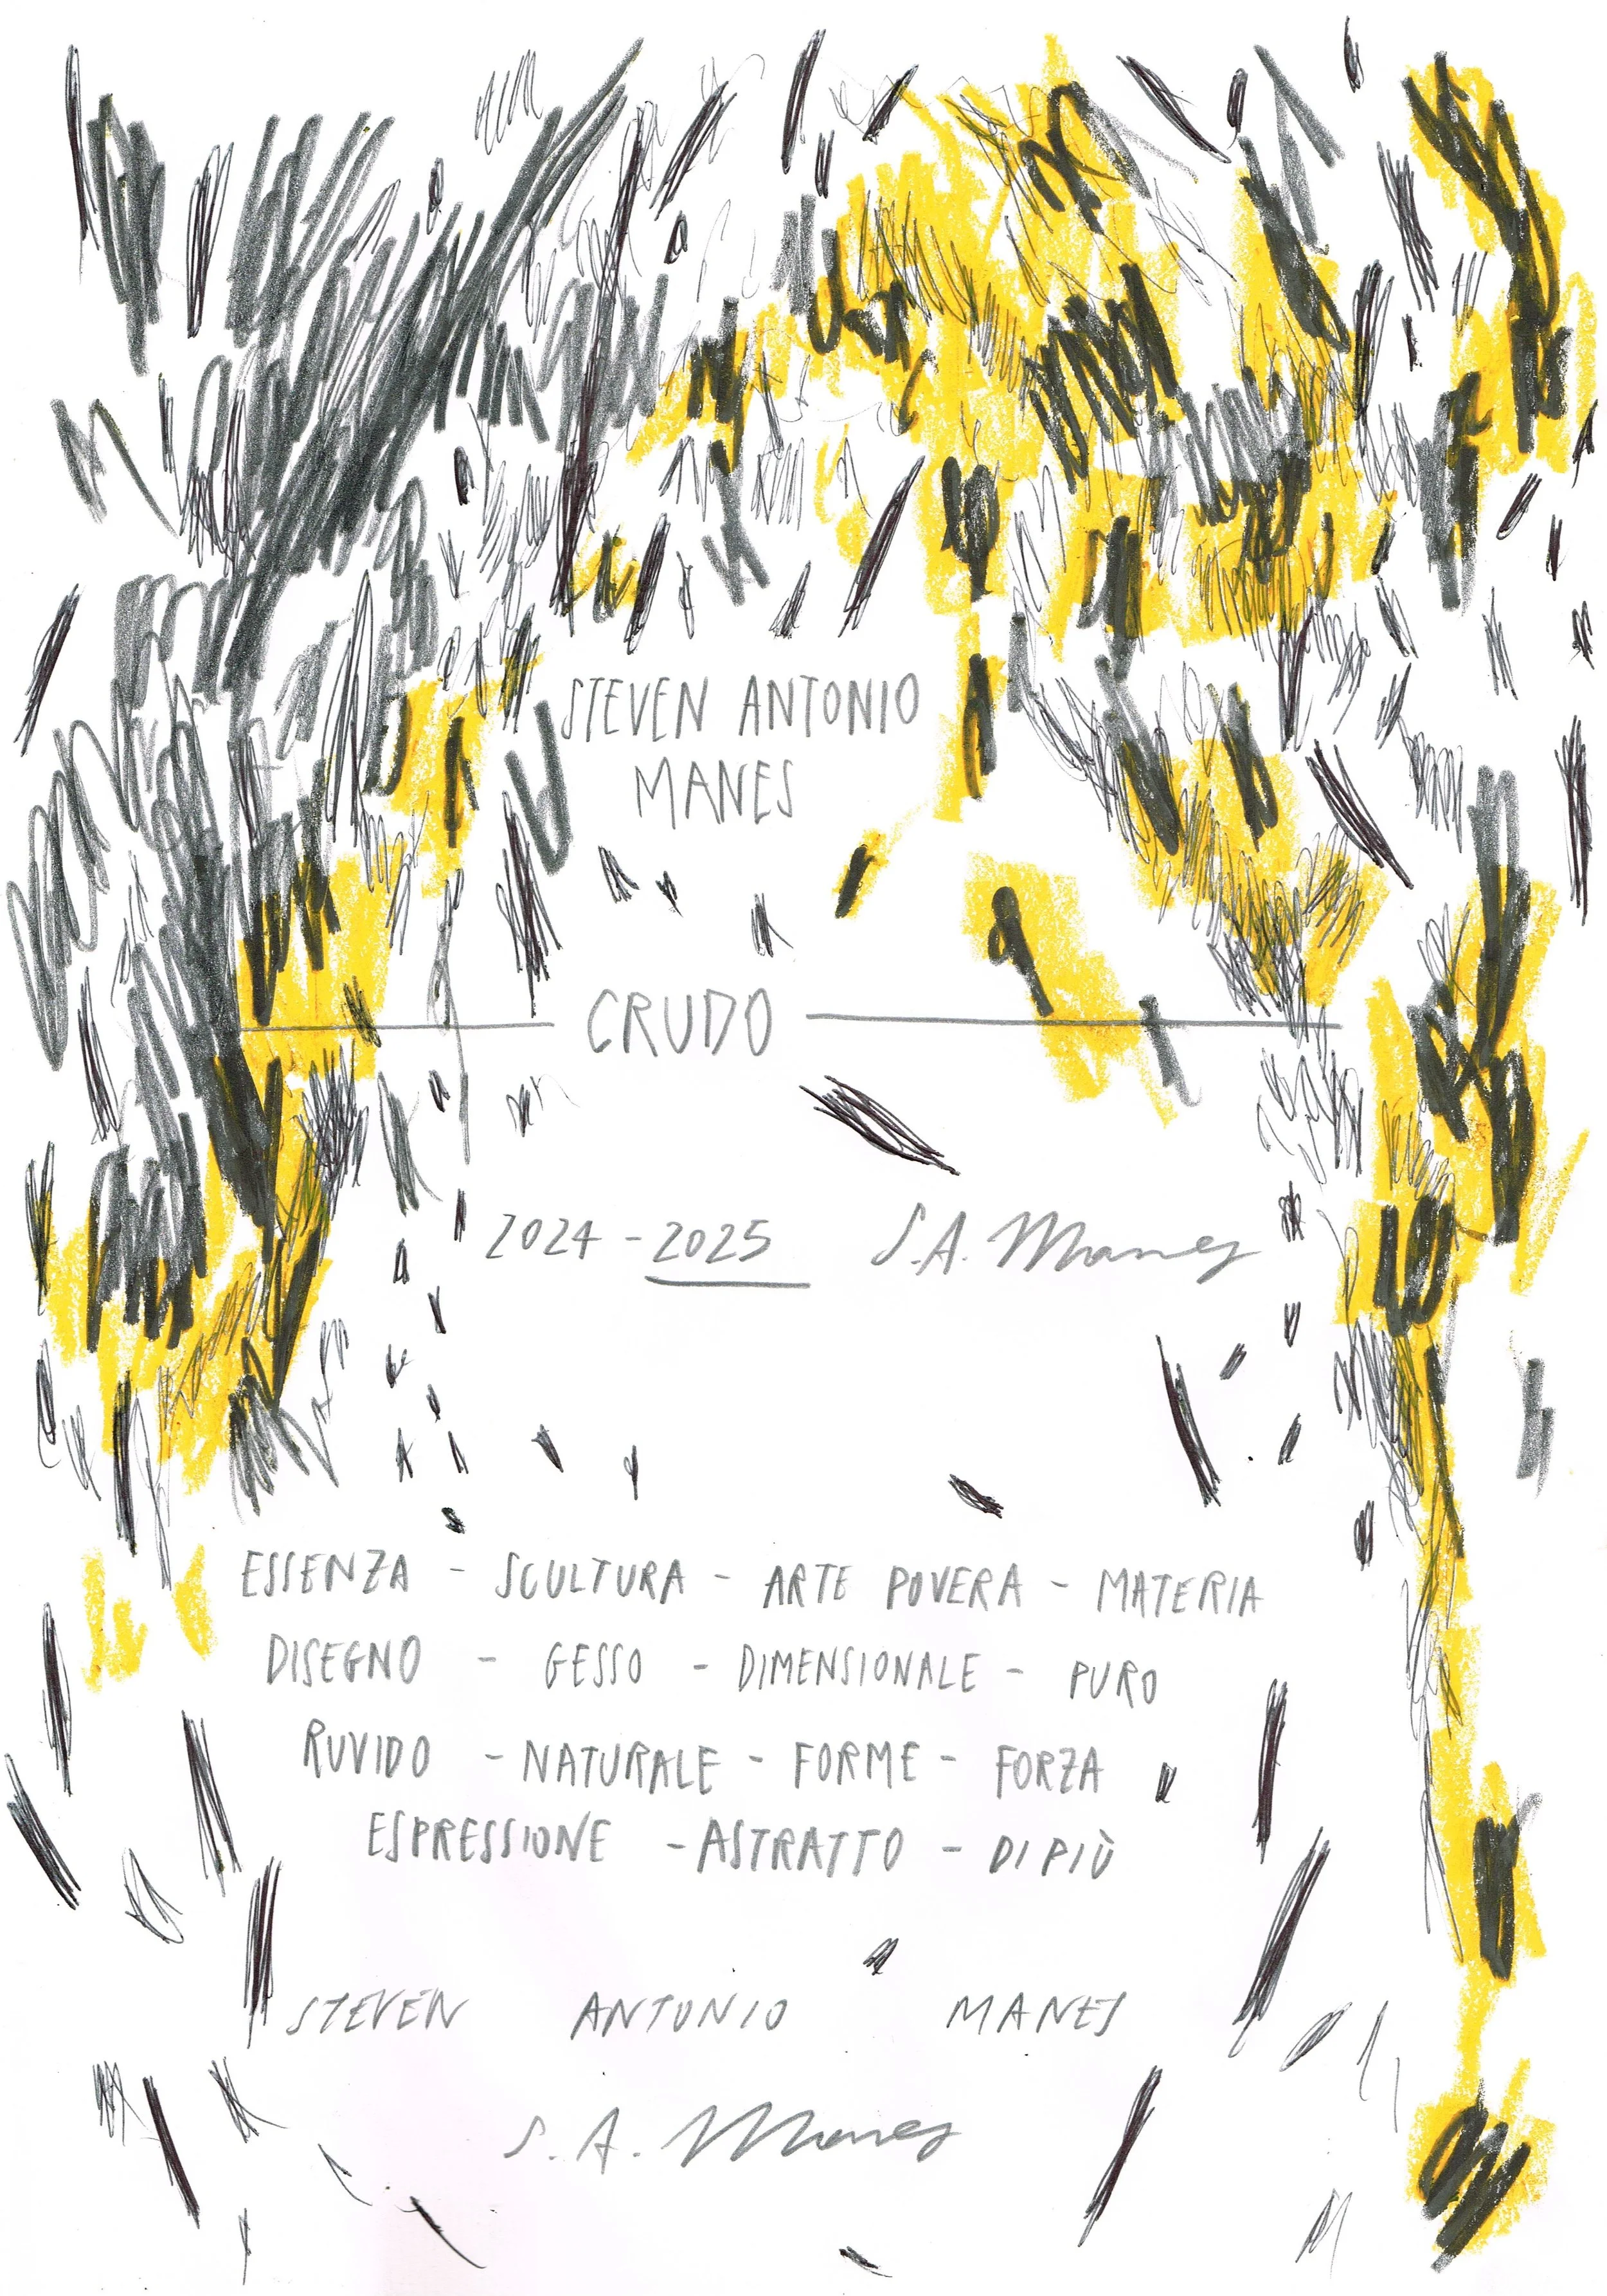 STEVEN ANTONIO
MANES
CRUDO
2024 - 2025 S.A. Manes
ESSENZA - SCULTURA - ARTE POVERA - MATERIA
DISEGNO - GESSO - DIMENSIONALE - PURO
RUVIDO - NATURALE - FORME - FORZA
ESPRESSIONE - ASTRATTO - DI PIÙ
STEVEN ANTONIO MANES
S. A. Manes